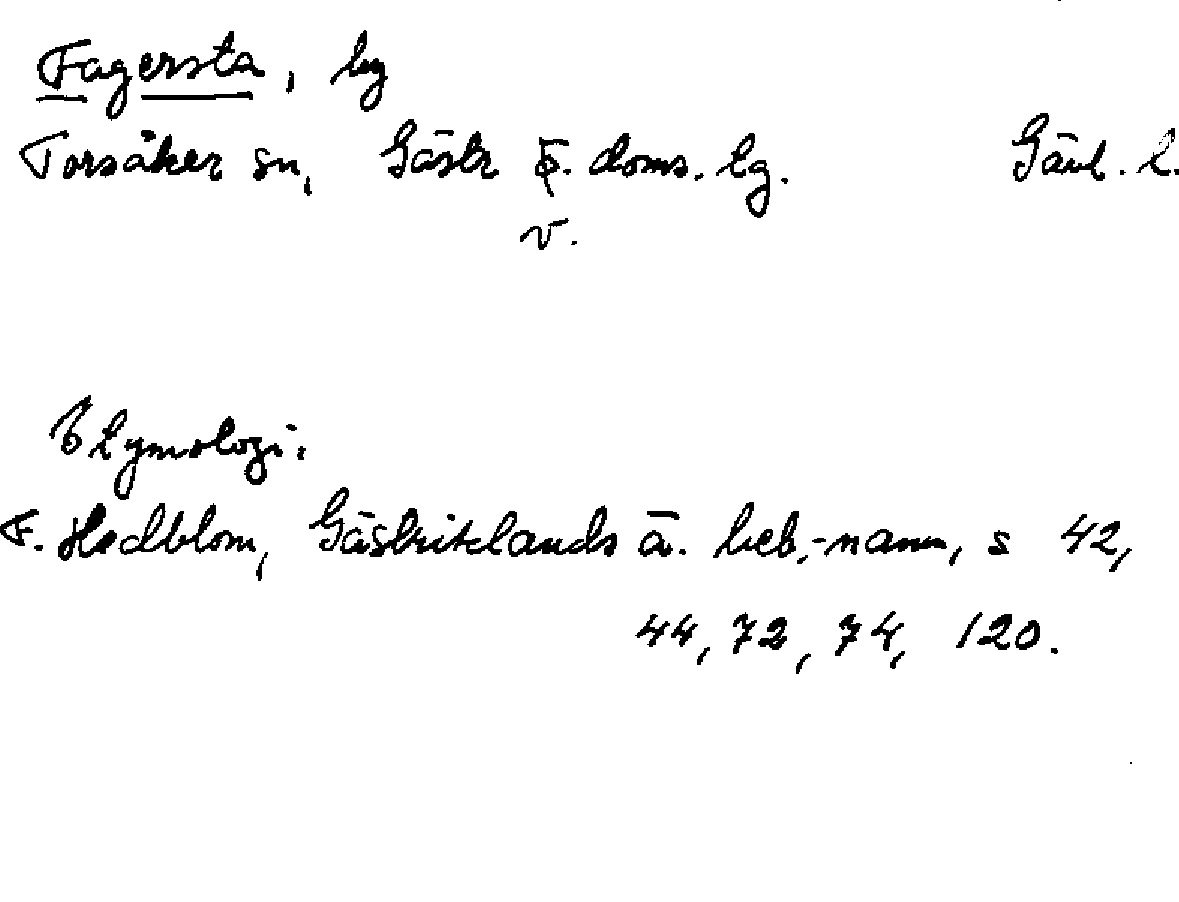 Fagersta, by
Torsåker sn, Gästr ö. doms. lg. Gävl. l.
v.
Etymologi.
F. Hedblom, Gästriklands ä. beb.-namn, s 42,
44, 72, 74, 120.